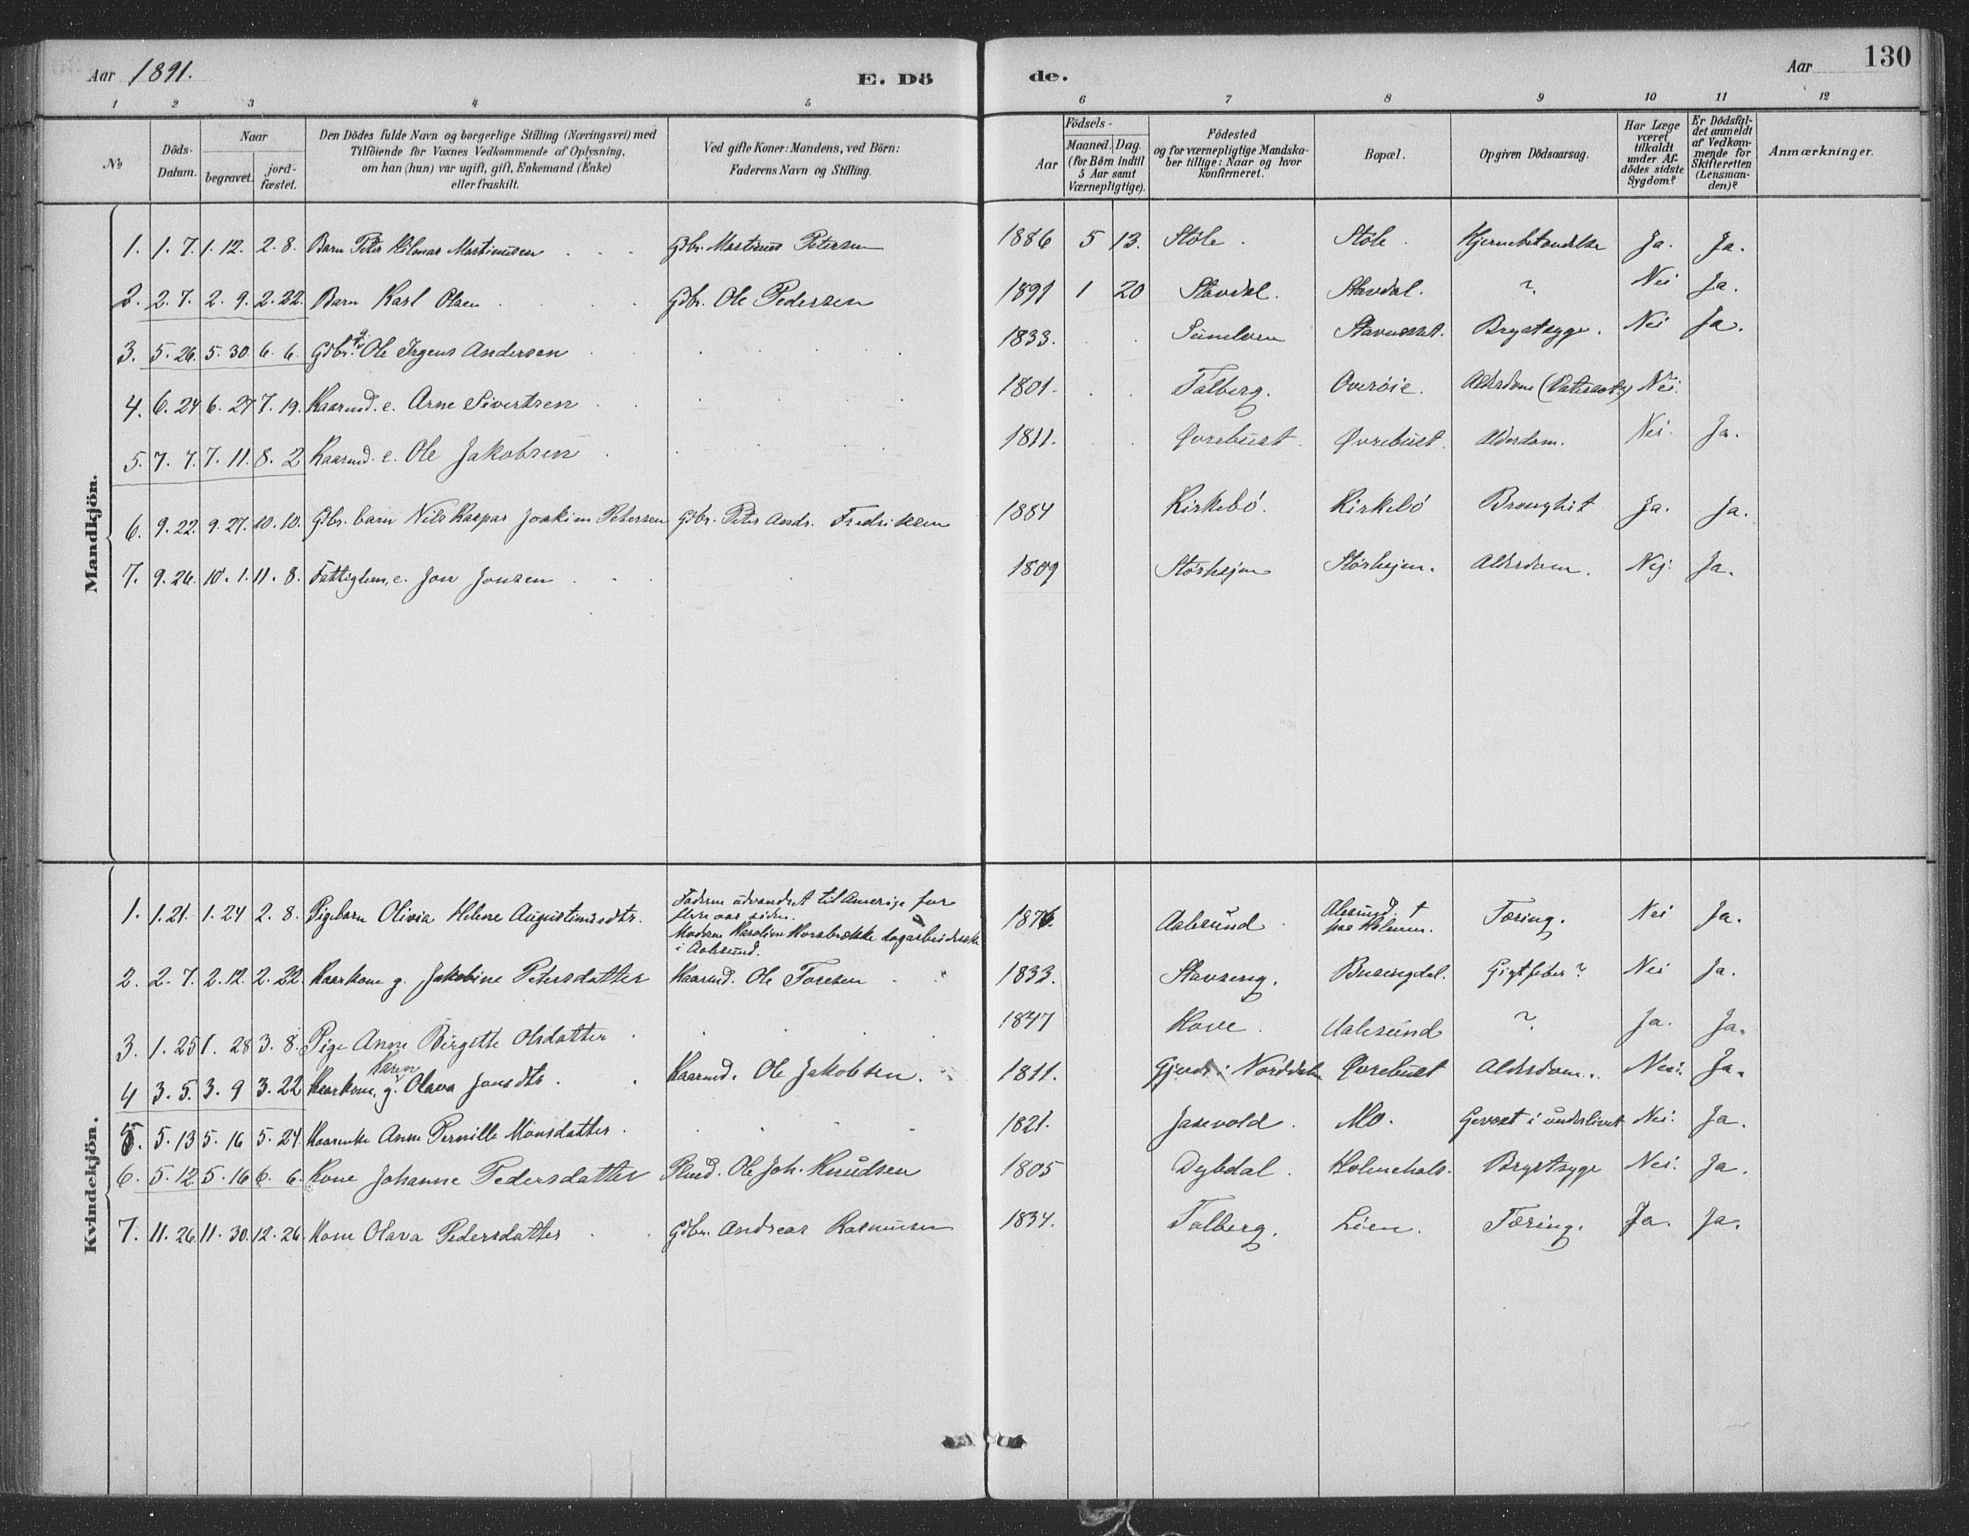 Aar 1891.
E. Dö
de.
Aar
130
1 2 3 4 5 6 7 8 9 10 11 12
No
Döds-Datum.
Naar
begravet.
jord-fæstet.
Den Dödes fulde Navn og borgerlige Stilling (Næringsvei) med
Tilföiende for Voxnes Vedkommende af Oplysning,
om han (hun) var ugift, gift, Enkemand (Enke)
eller fraskilt.
Ved gifte Koner: Mandens, ved Börn:
Faderens Navn og Stilling.
Födsels-
Aar
Maaned. Dag.
(for Börn indtil
5 Aar samt
Værnepligtige).
Födested
og for værnepligtige Mandska-
ber tillige: Naar og hvor
konfirmeret.
Bopæl.
Opgiven Dödsaarsag.
Har Læge
været
tilkaldt
under Af-
dödes sidste
Sygdom?
Er Dödsfal-
det anmeldt
af Vedkom-
mende for
Skifteretten
(Lensman-
den)?
Anmærkninger.
Mandkjön.
1. 1. 7. 1. 12. 2. 8. Barn Peter Hilmar Martinusen Gdbr. Martinus Petersen 1886 5 13. Støle. Støle. Hjernebetændelse Ja. Ja.
2. 2. 7. 2. 9. 2. 22. Barn Karl Olsen Gdbr. Ole Pedersen 1891 1 20 Stavdal. Stavdal. ?. Nei Ja.
3. 5. 26. 5. 30. 6. 6. Gdbr. g. Ole Irgens Andersen 1833. Sunelven Stavseset. Brystsyge. Nei Ja.
4. 6. 24 6. 27 7. 19. Kaarmd. e. Arne Sivertsen 1801. Talberg. Overøie. Alderdom Nei.
5. 7. 7. 7. 11. 8. 2 Kaarmd. e. Ole Jakobsen 1811. Øvrebust. Øvrebust. Alderdom. Nei. Ja.
6. 9. 22. 9. 27. 10. 10. Gdbr. barn Nils Kaspar Joakim Petersen Gdbr. Peter Andr. Fredriksen 1884 Kirkebö. Kirkebö Bronghit Ja. Ja.
7. 9. 26. 10. 1. 11. 8. Fattiglem, e. Jon Jonsen 1809 Størhejen Størhejen. Alderdom. Nej. Ja.
Kvindekjön.
1. 1. 21. 1. 24 2. 8. Pigebarn Olivia Helene Augustinusdtr. Faderen udvandret til Amerige for
flere aar siden.
Moderen Karoline Horsbrække dagarbeiderske
i Aalesund. 1876. Aalesund Alesund †
paa Holmen. Tæring. Nei Ja.
2. 2. 7. 2. 12. 2. 22. Kaarkone g. Jakobine Petersdatter Kaarmd. Ole Toresen 1833. Stavseng. Busengdal. Gigtfeber? Nei Ja.
3. 1. 25 1. 28 3. 8. Pige Anne Birgitte Olsdatter 1847 Hove. Aalesund ?. Ja. Ja.
4 3. 5. 3. 9 3. 22 Kaarkone, g. Karen Olava Jonsdtr. Kaarmd. Ole Jakobsen. 1811. Gjerde i Norddalen Øvrebust Alderdom. Nei. Ja.
5. 5. 13 5. 16 5. 24 Kaarenke Anne Pernille Monsdatter. 1821. Jasevold. Mo. Gevext i underlivet Nei. Ja.
6. 5. 12 5. 16 6. 6. Kone Johanne Pedersdatter Plmd. Ole Joh. Knudsen 1805 Dybdal. Holmehals. Brystsyge Nei. Ja.
7. 11. 26. 11. 30. 12. 26. Kone Olava Pedersdatter Gdbr. Andreas Rasmusen 1834. Talberg. Lien. Tæring. Ja. Ja.